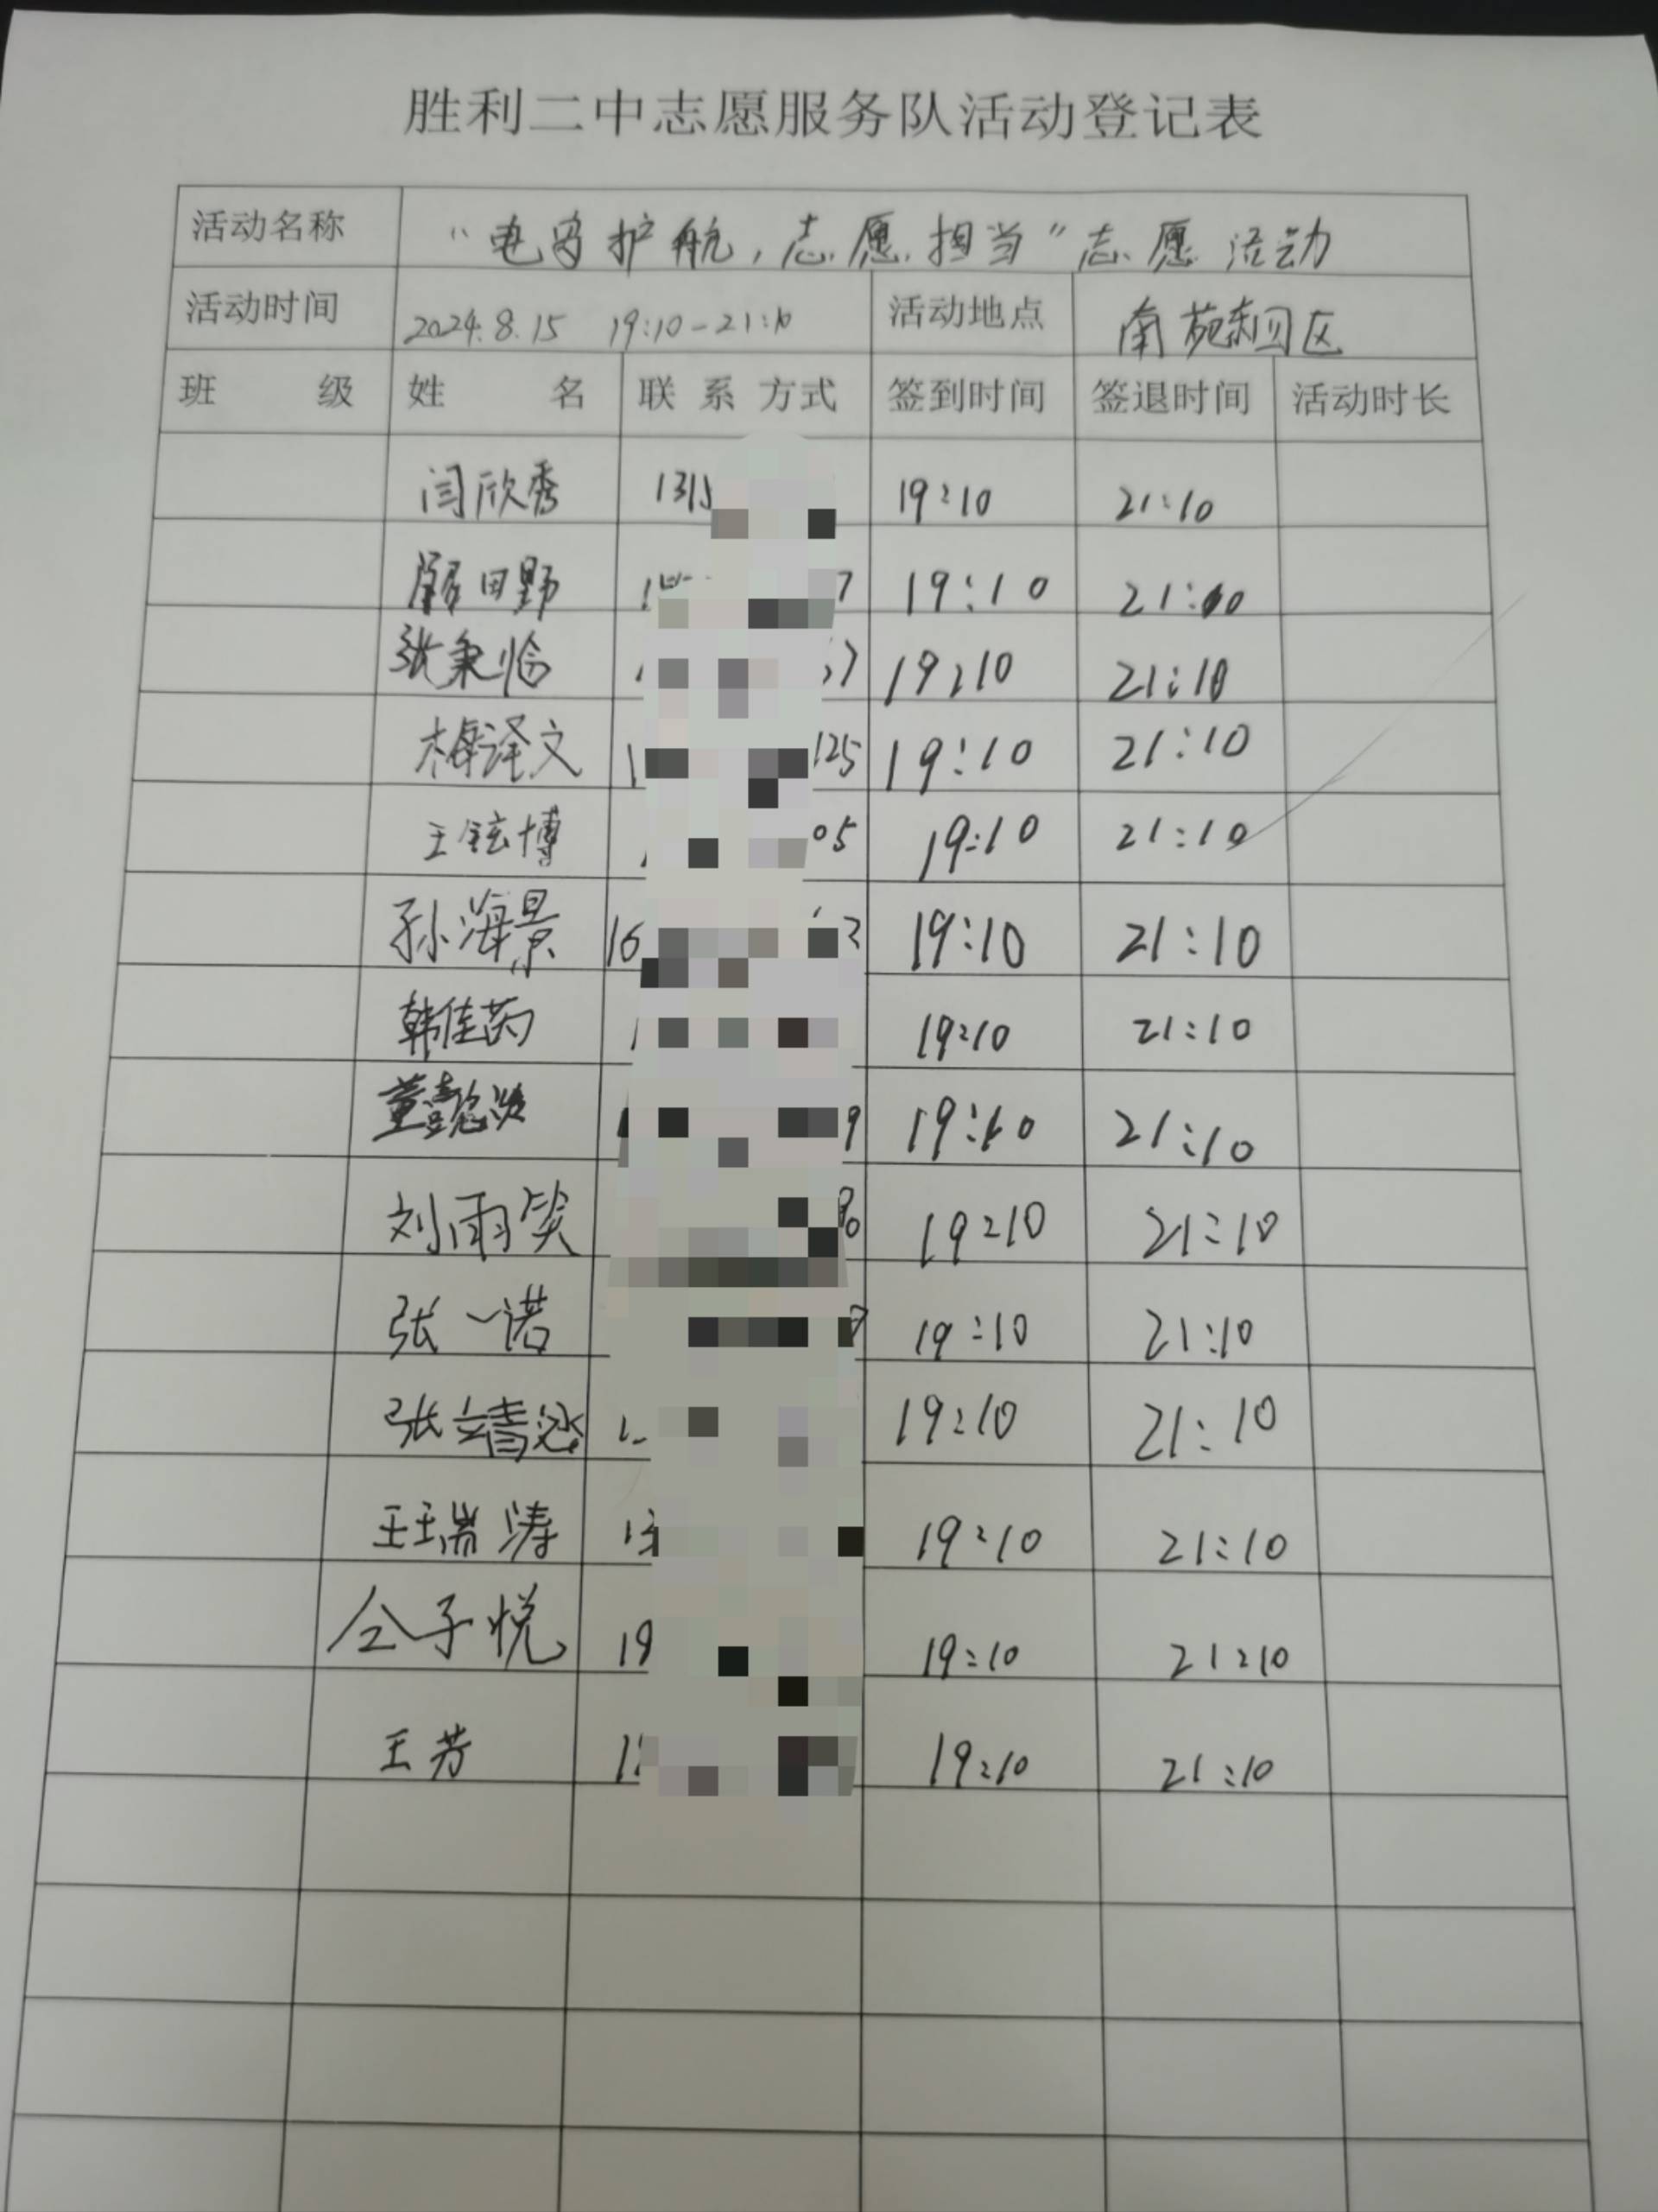 胜利二中志愿服务队活动登记表
活动名称 “电马护航，志愿担当”志愿活动
活动时间 2024.8.15 19:10-21:10 活动地点 南苑 园区
班 级 姓 名 联 系 方式 签到时间 签退时间 活动时长
闫欣秀 1315 19:10 21:10
田野 7 19:10 21:10
张秉 19:10 21:10
梅泽文 1 125 19:10 21:10
王铉博 05 19:10 21:10
孙海景 16 19:10 21:10
韩佳芮 19:10 21:10
董懿 9 19:10 21:10
刘雨笑 19:10 21:10
张一诺 19:10 21:10
张靖 19:10 21:10
王瑞涛 13 19:10 21:10
仝子悦 19 19:10 21:10
王芳 1 19:10 21:10